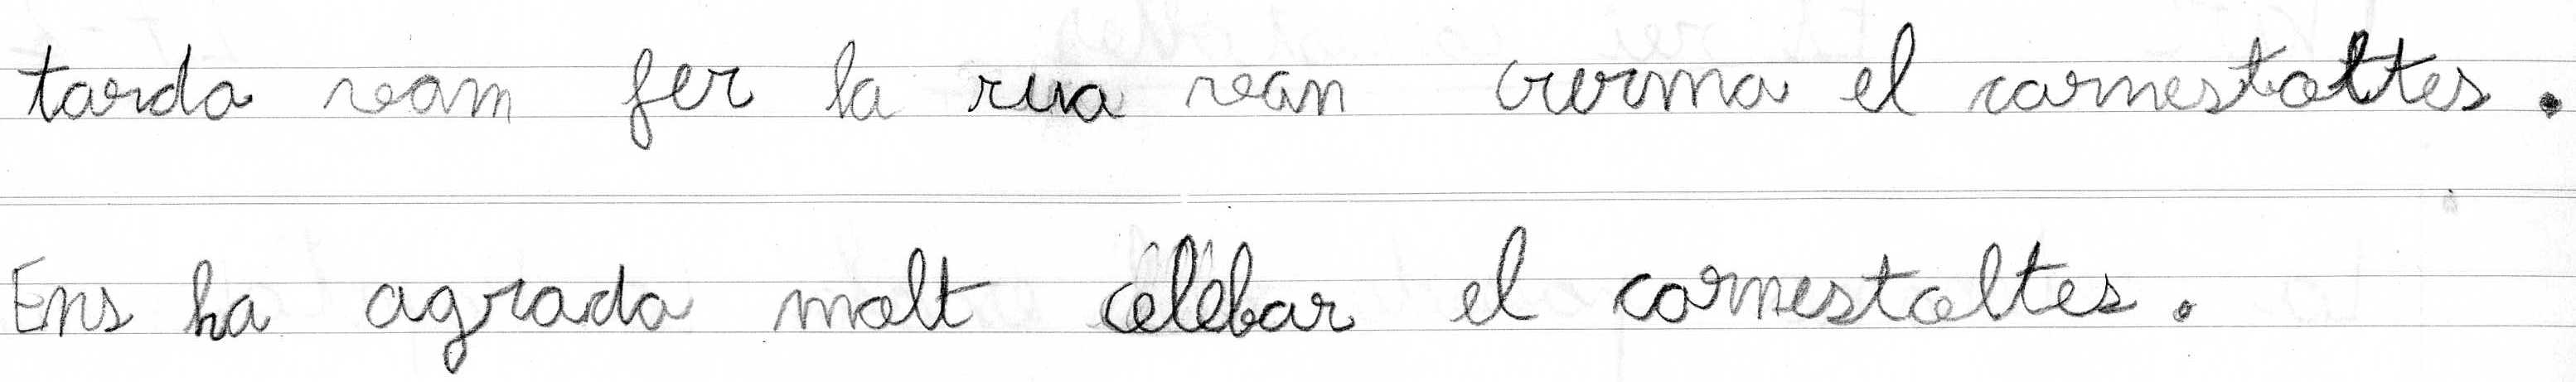 tarda vam fer la rua van crerma el carnestoltes.
Ens ha agrada molt celebar el cornestoltes.